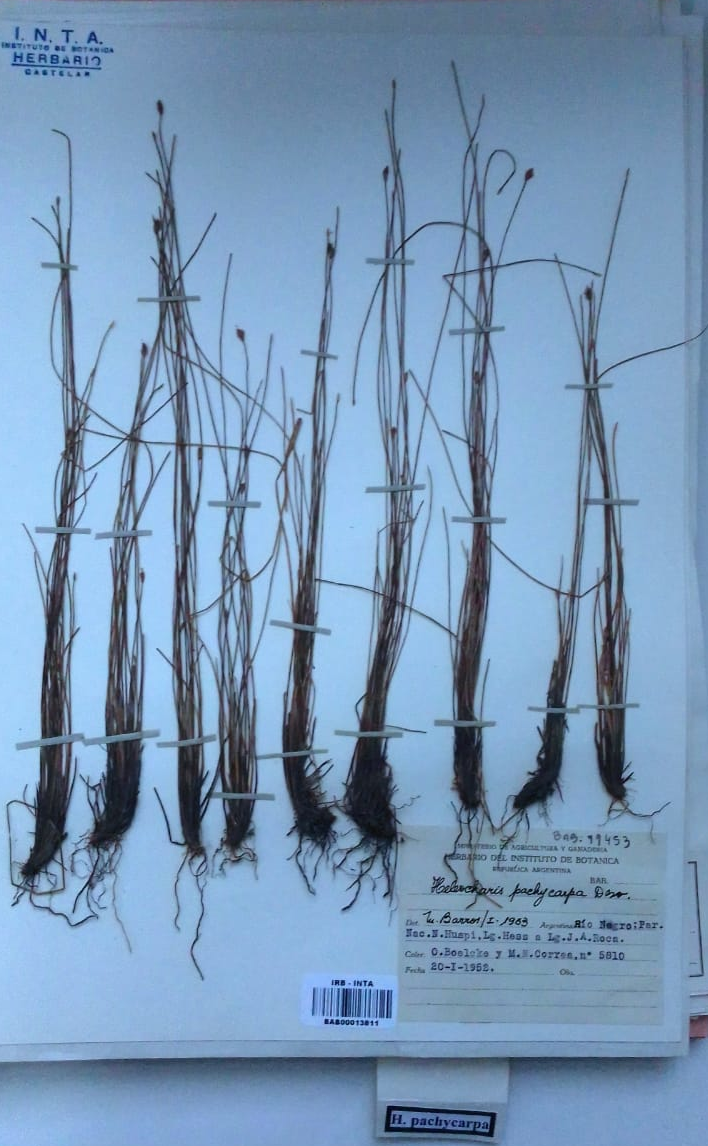 I. N. T. A.
INSTITUTO DE BOTANICA
HERBARIO
CASTELAR
BAB. 99453
MINISTERIO DE AGRICULTURA Y GANADERIA
HERBARIO DEL INSTITUTO DE BOTANICA
REPUBLICA ARGENTINA
BAB.
Heleocharis pachycarpa Desv.
Det. M. Barros/I-1953 Argentina: Río Negro: Par.
Nac. N. Huapi, Lg. Hess a Lg. J. A. Roca.
Colec. O. Boelcke y M. N. Correa, n° 5810
Fecha 20-I-1952. Obs.
IRB - INTA
BAB00013811
H. pachycarpa